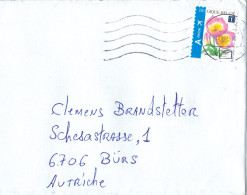 BELGIQUE-BELGIË
Clemens Brandstetter
Schesastrasse, 1
6706 BÜRS
AUTRICHE